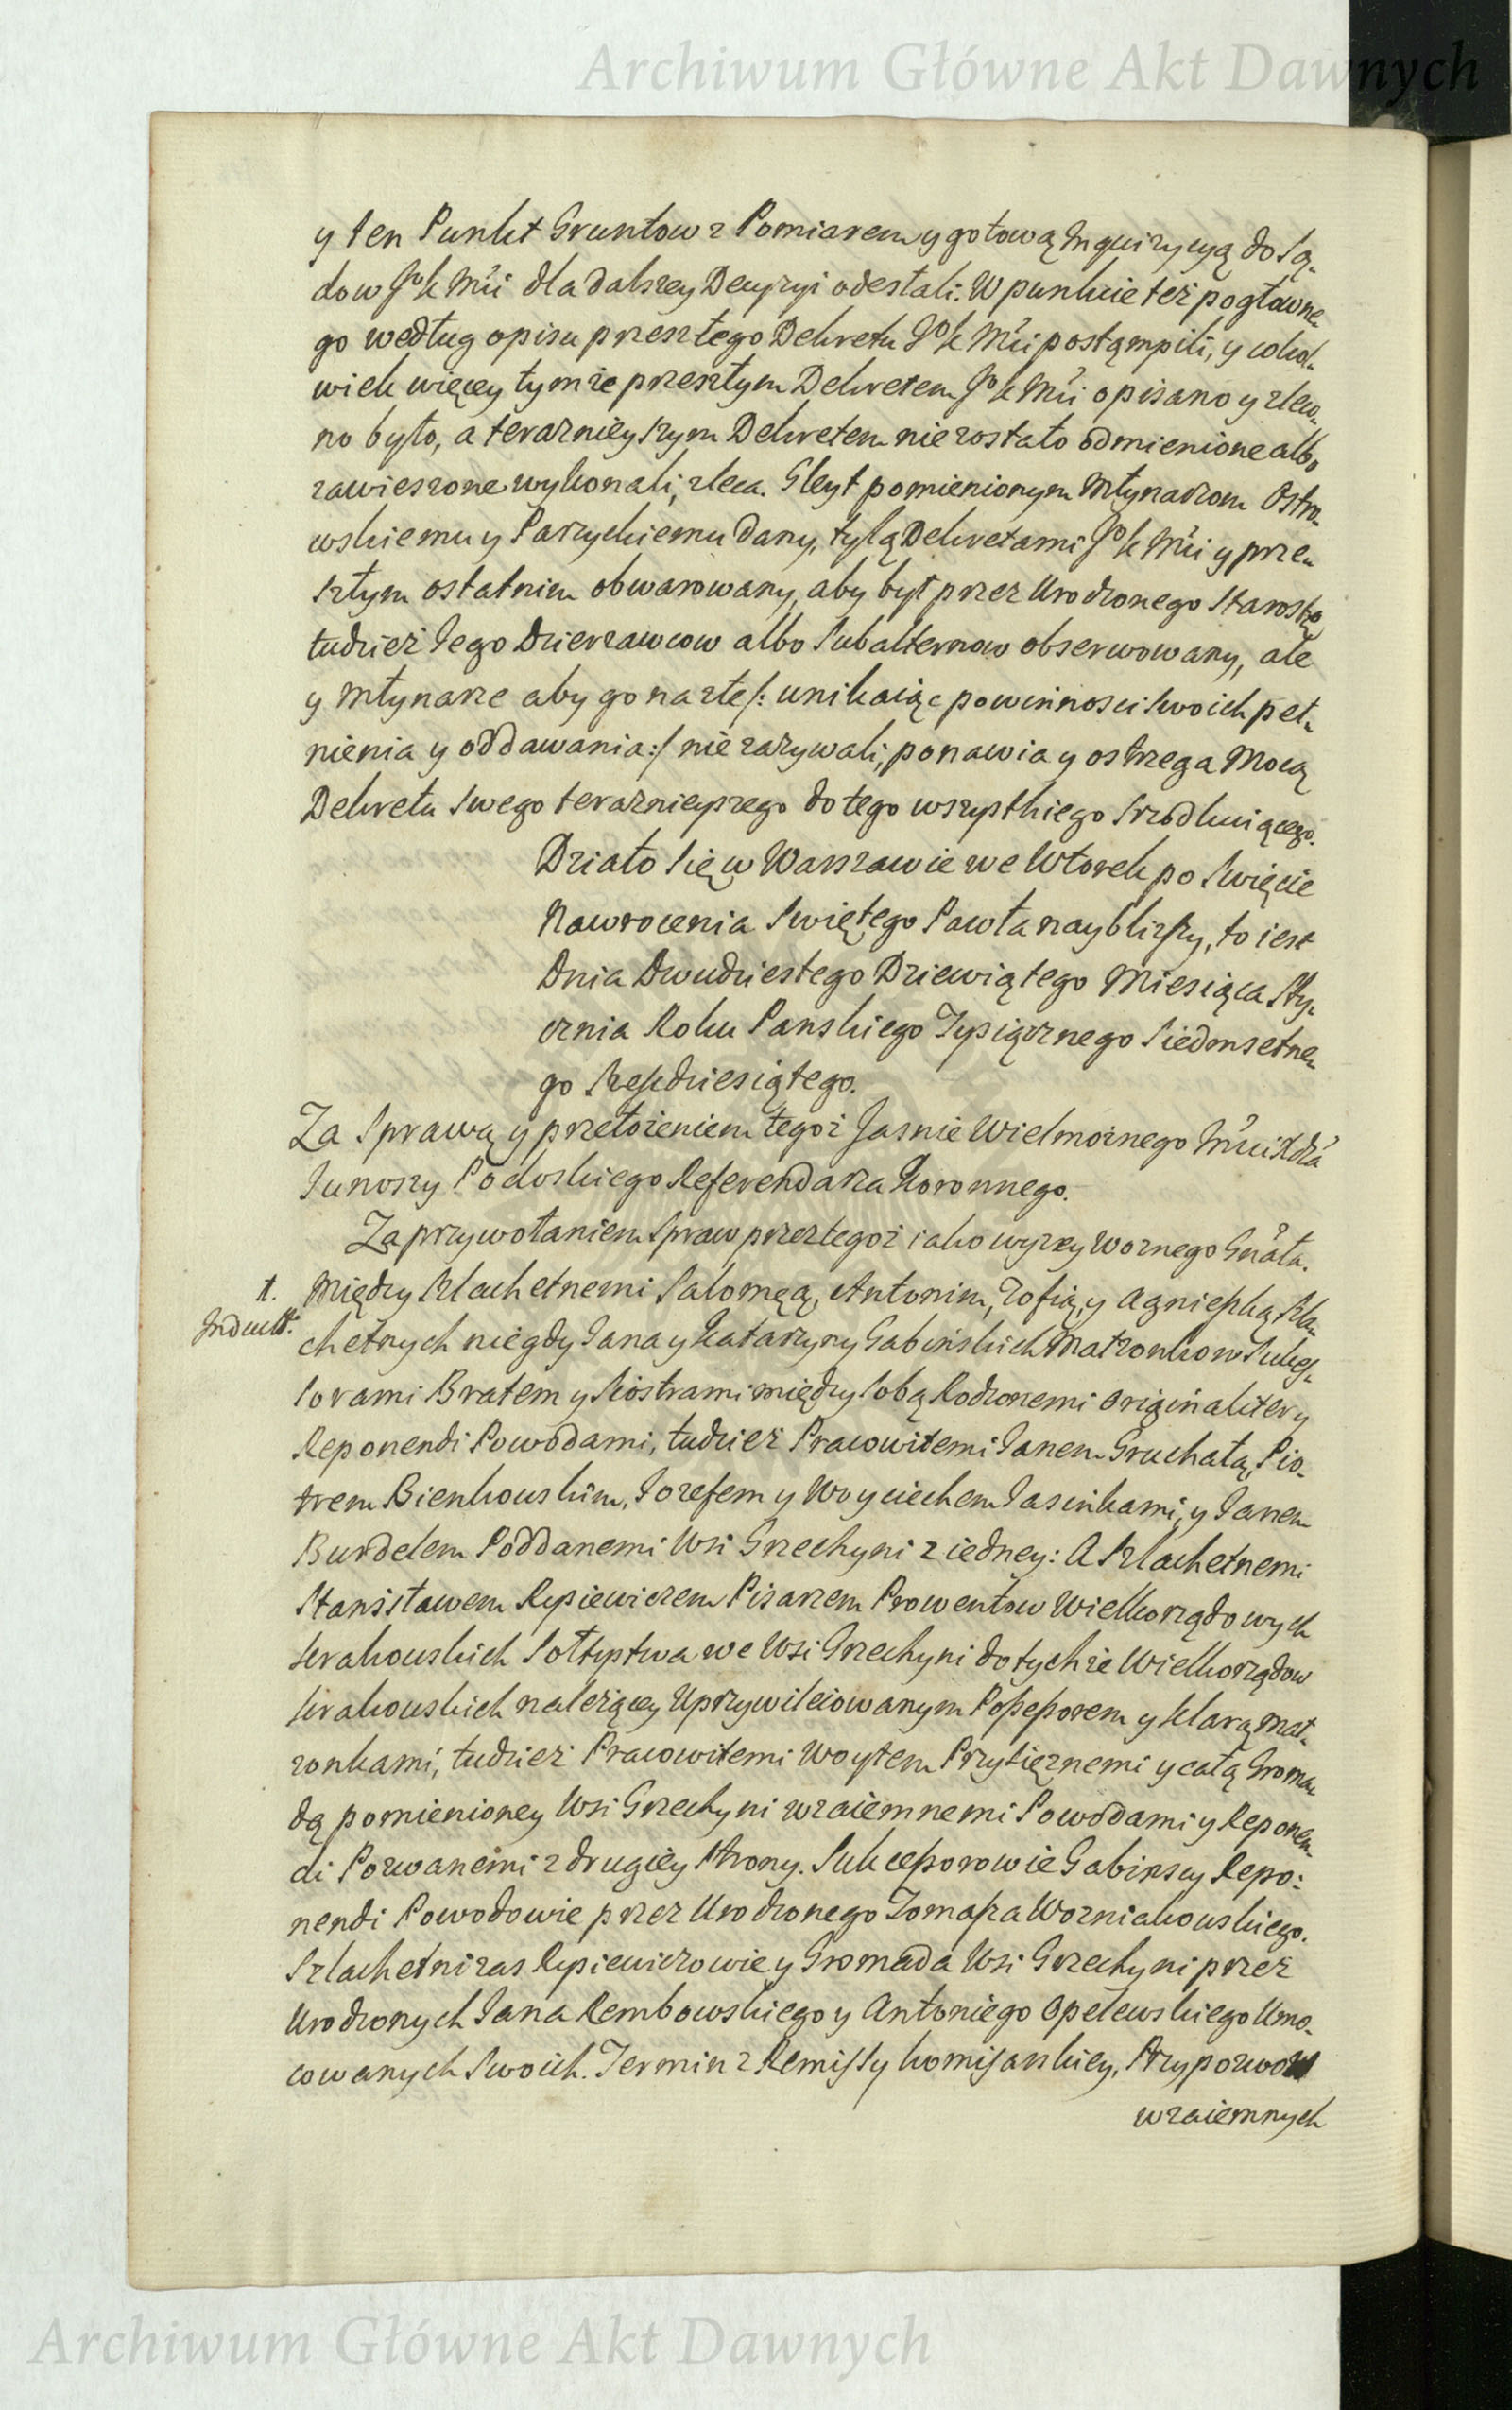 Archiwum Główne Akt Dawnych
y ten Punkt Gruntow z Pomiarem y gotową Inquizycyą do Są-
dow J° K Mći dla dalszey Decyzyi odesłali. W punkcie też pogłowne-
go według opisu przeszłego Dekretu J° K Mći postąmpili, y cokol-
wiek więcey tymże przeszłym Dekretem J° K Mći opisano y zleco-
no było, a teraznieyszym Dekretem nie zostało odmienione albo
zawieszone wykonali, zleca. Gleyt pomienionym Młynarzom Ostro-
wskiemu y Parzyckiemu dany, tylą Dekretami J° K Mći y prze-
szłym ostatnim obwarowany, aby był przez Urodzonego Starostę
tudzież Jego Dzierzawcow albo Subalternow obserwowany, ale
y Młynarze aby go na złe /: unikaiąc powinnosci swoich peł-
nienia y oddawania :/ nie zażywali, ponawia y ostrzega Mocą
Dekretu Swego teraznieyszego do tego wszystkiego srzodkuiącego.
Działo się w Warszawie we Wtorek po Swięcie
Nawrocenia Swiętego Pawła naybliższy, to iest
Dnia Dwudziestego Dziewiątego Miesiąca Sty-
cznia Roku Panskiego Tysiącznego Siedmsetne-
go Szesćdziesiątego.
Za Sprawą y przełożeniem tegoż Jasnie Wielmożnego Jmći Xdza
Junoszy Podoskiego Referendarza Koronnego.
Za przywołaniem Spraw przez tegoż iako wyżey Woznego Gnała.
1. Między Szlachetnemi Salomeą, Antonim, Zofią, y Agnieszką Szla-
Inducta.
chetnych niegdy Jana y Katarzyny Gabińskich Małżonkow Sukces-
sorami Bratem y Siostrami między sobą Rodzonemi originaliter y
Reponendi Powodami, tudzież Pracowitemi Janem Gruchałą, Pio-
trem Bienkowskim, Jozefem y Woyciechem Jasinkami, y Janem
Burdelem Poddanemi Wsi Grzechyni z iedney: A Szlachetnemi
Stanisławem Rypiewiczem Pisarzem Prowentow Wielkorządowych
Krakowskich Sołtystwa we Wsi Grzechyni do tychże Wielkorządow
Krakowskich należącey Uprzywileiowanym Possessorem y Klarą Mał-
zonkami, tudzież Pracowitemi Woytem Przysięznemi y całą Groma-
dą pomienioney Wsi Grzechyni wzaiemnemi Powodami y Reponen-
di Pozwanemi z drugiey Strony. Sukcessorowie Gabinscy Repo:
nendi Powodowie przez Urodzonego Tomasza Wozniakowskiego.
Szlachetni zas Rypiewiczowie y Gromada Wsi Grzechyni przez
Urodzonych Jana Rembowskiego y Antoniego Opelewskiego Umo-
cowanych Swoich. Termin z Remissy komissarskiey, Przypozwow
wzaiemnych
Archiwum Główne Akt Dawnych